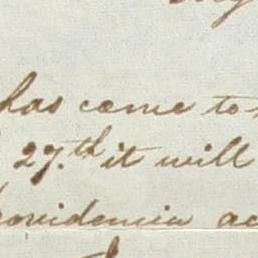 has come to
27.th it will
rovidencia ac